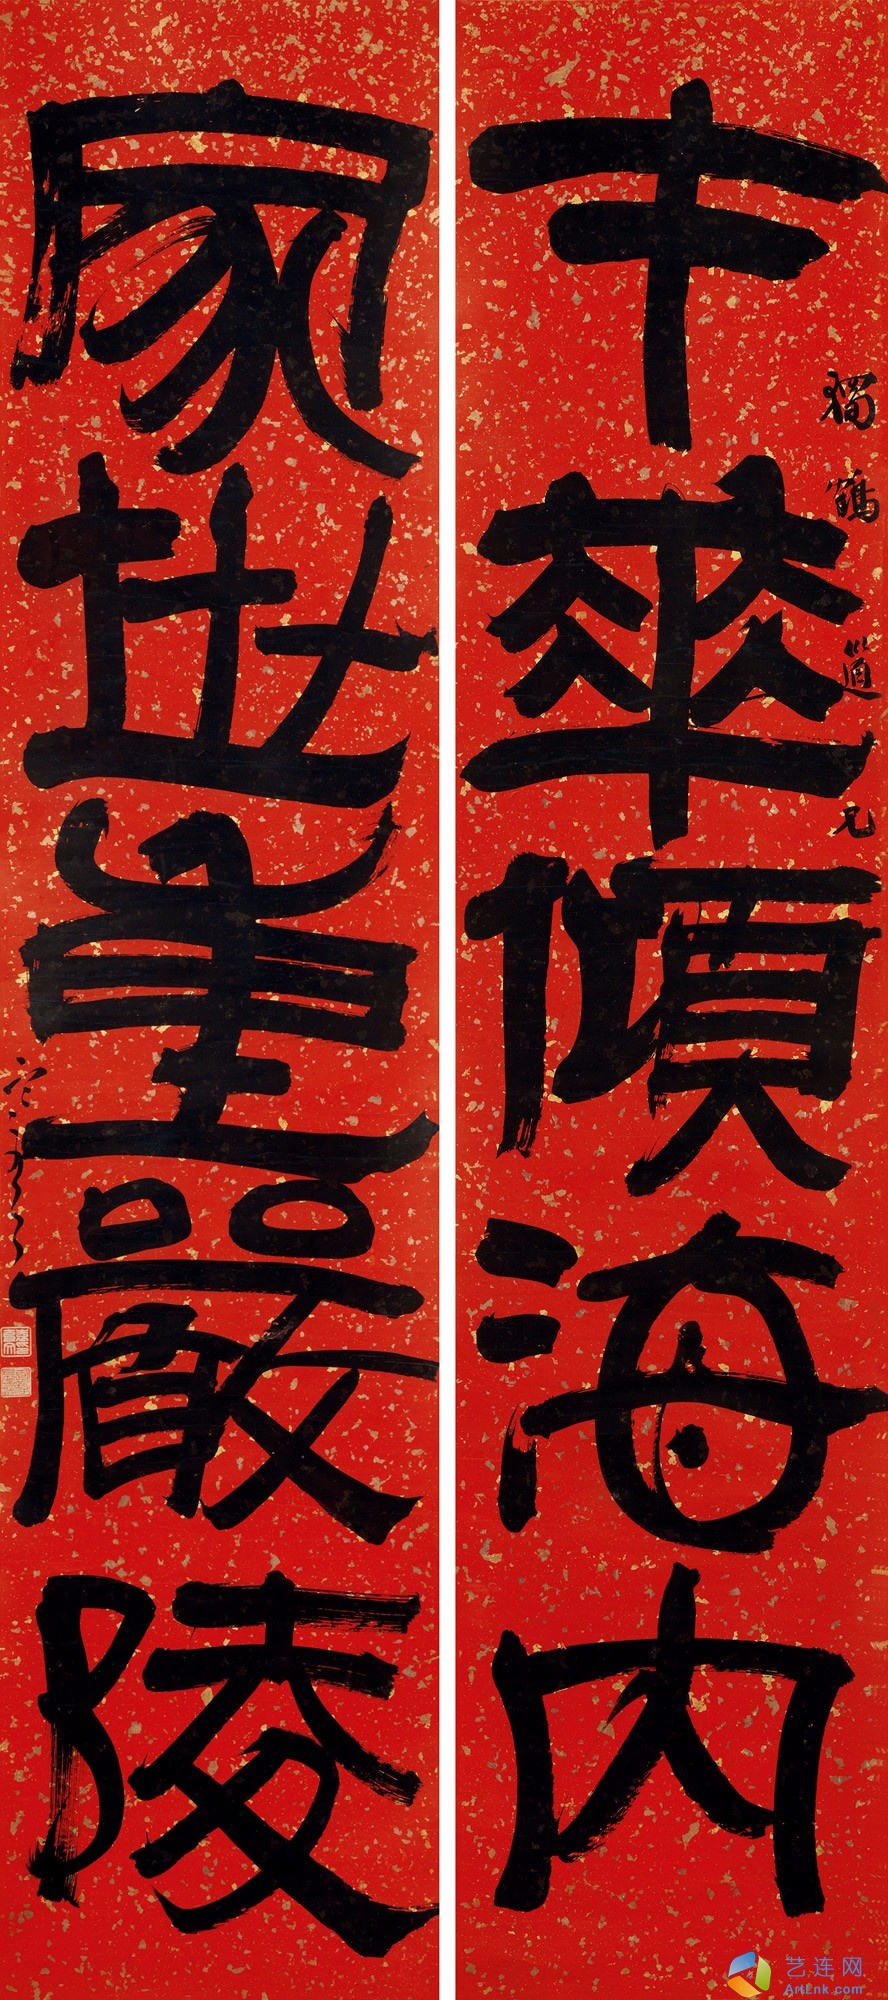 才華傾海內
獨鶴道兄
家世重嚴陵
艺连网
ArtEnk.com